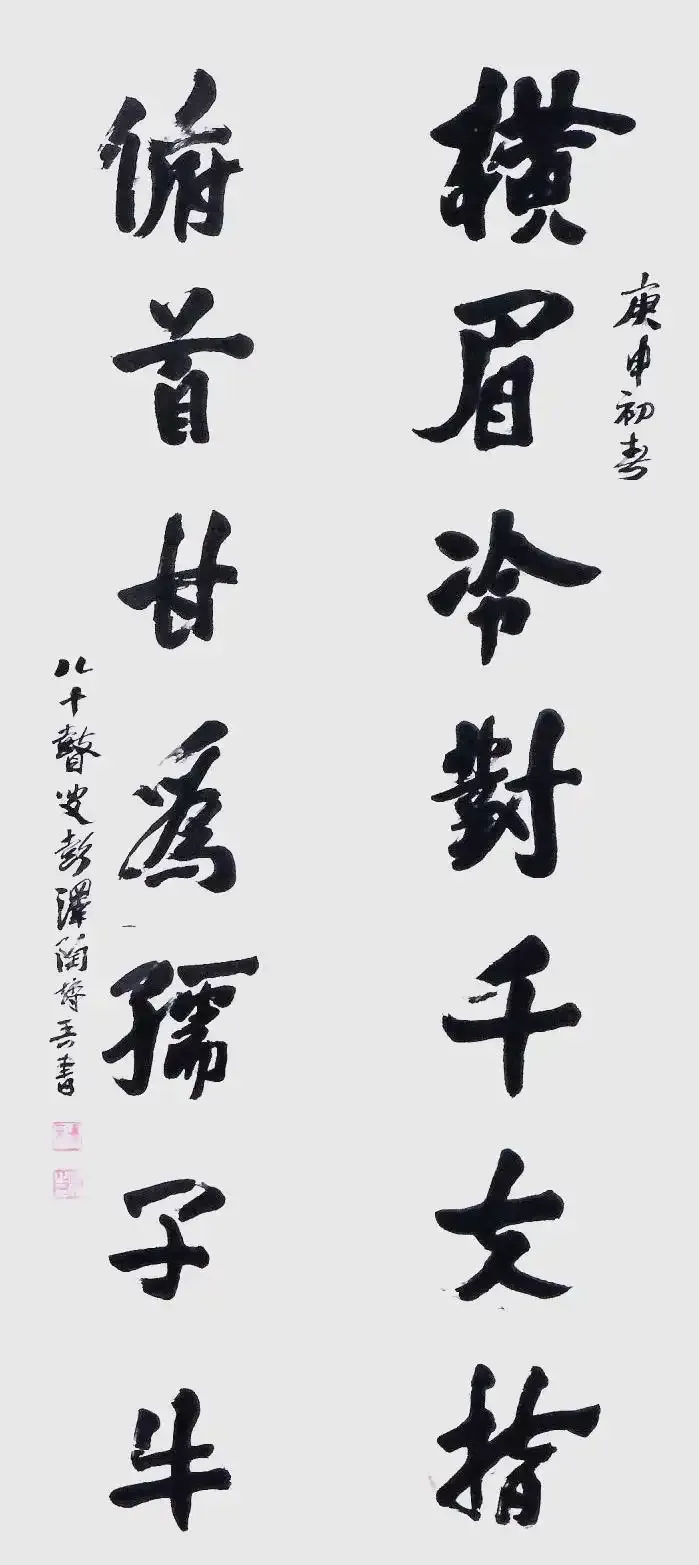 庚申初春
橫眉冷對千夫指
俯首甘爲孺子牛
八十瞽叟彭澤陶博吾書